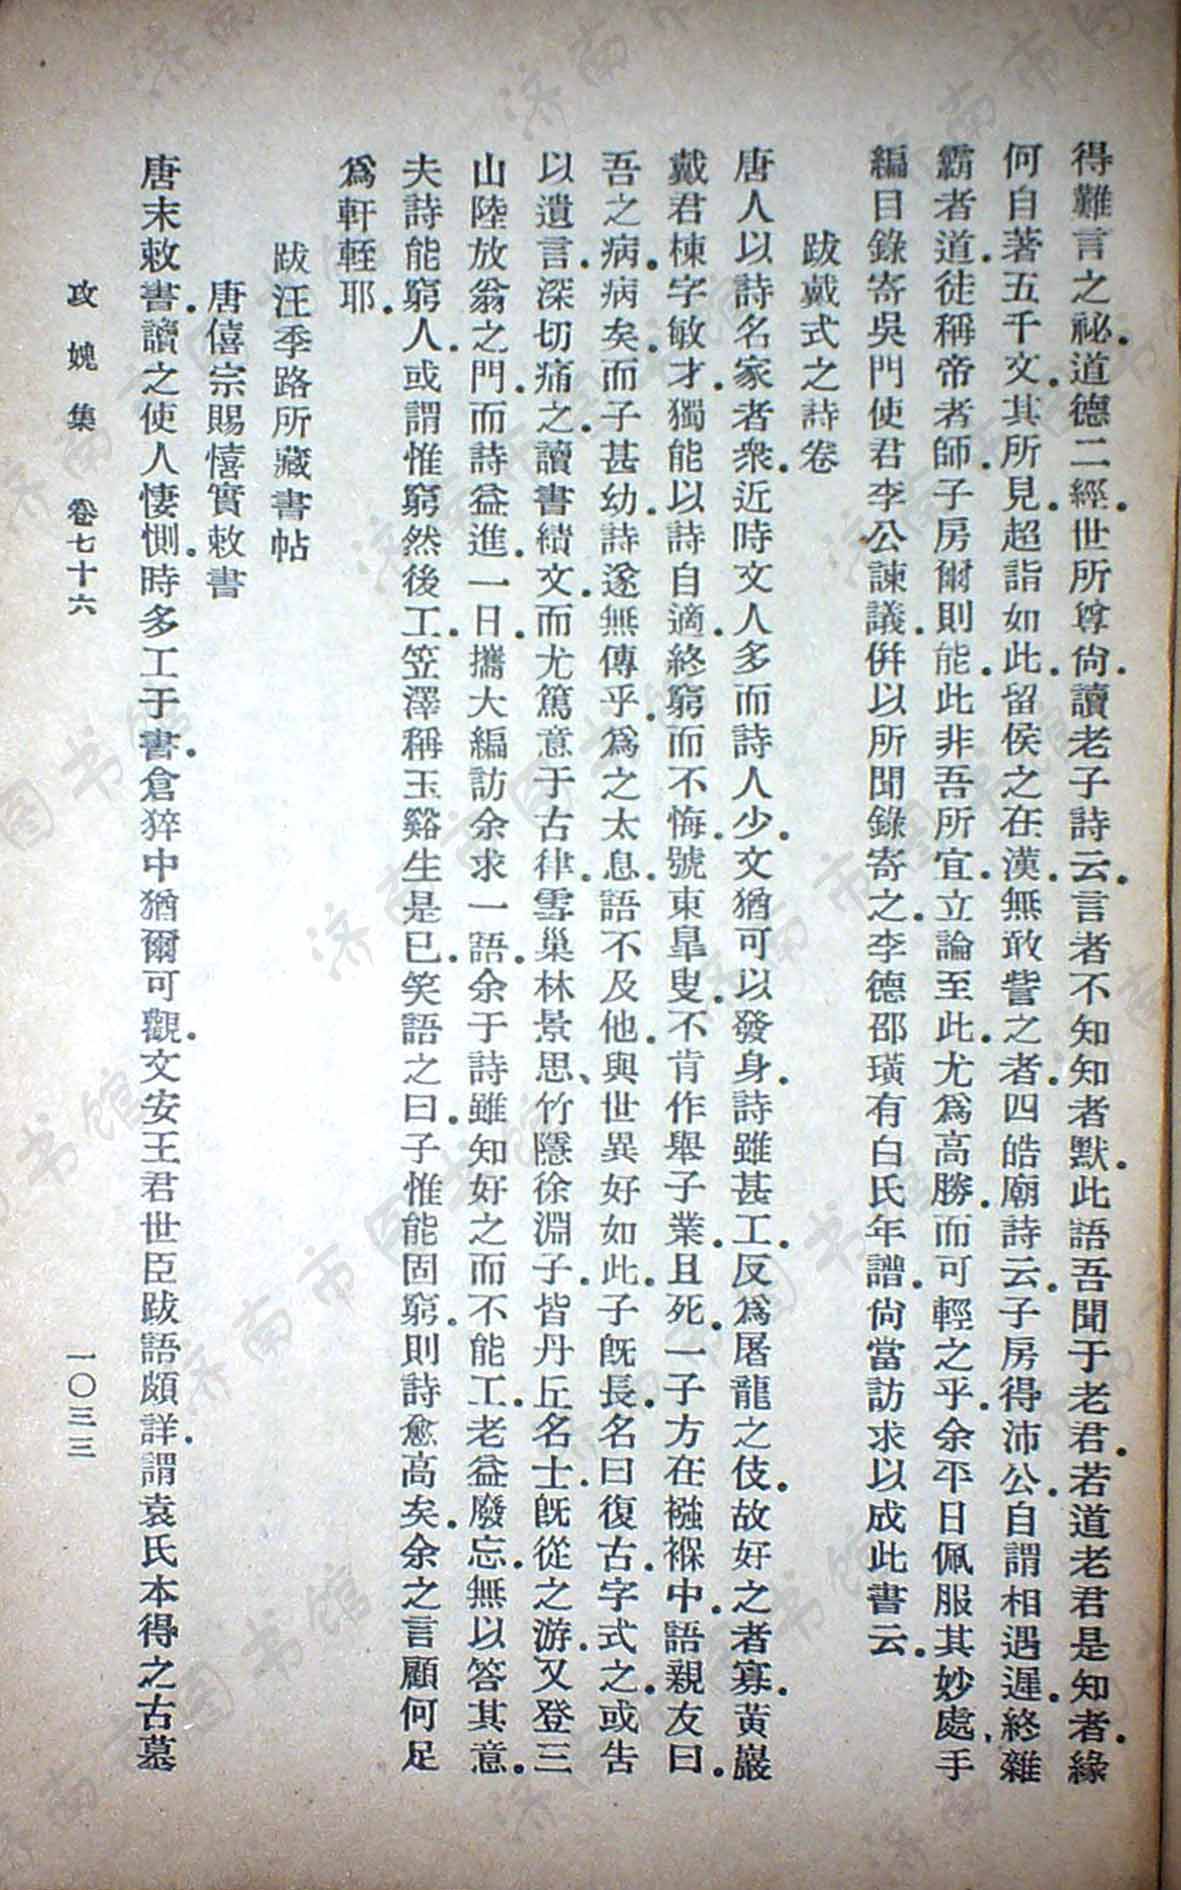 得難言之祕道德二經世所尊尙讀老子詩云言者不知知者默此語吾聞于老君若道老君是知者緣
何自著五千文其所見超詣如此留侯之在漢無敢訾之者四皓廟詩云子房得沛公自謂相遇遲終雜
霸者道徒稱帝者師子房爾則能此非吾所宜立論至此尤爲高勝而可輕之乎余平日佩服其妙處手
編目錄寄吳門使君李公諫議倂以所聞錄寄之李德邵璜有白氏年譜尙當訪求以成此書云
跋戴式之詩卷
唐人以詩名家者衆近時文人多而詩人少文猶可以發身詩雖甚工反爲屠龍之伎故好之者寡黃巖
戴君棟字敏才獨能以詩自適終窮而不悔號東皐叟不肯作舉子業且死一子方在襁褓中語親友曰
吾之病病矣而子甚幼詩遂無傳乎爲之太息語不及他與世異好如此子旣長名曰復古字式之或告
以遺言深切痛之讀書績文而尤篤意于古律雪巢林景思、竹隱徐淵子皆丹丘名士旣從之游又登三
山陸放翁之門而詩益進一日攜大編訪余求一語余于詩雖知好之而不能工老益廢忘無以答其意
夫詩能窮人或謂惟窮然後工笠澤稱玉谿生是已笑語之曰子惟能固窮則詩愈高矣余之言顧何足
爲軒輊耶
跋汪季路所藏書帖
唐僖宗賜憘實敕書
唐末敕書讀之使人悽惻時多工于書倉猝中猶爾可觀文安王君世臣跋語頗詳謂袁氏本得之古墓
攻媿集 卷七十六 一〇三三
济南市图书馆